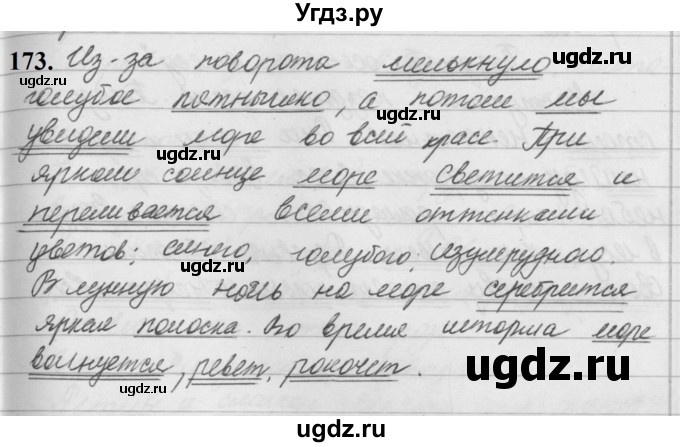 Угдз.ру
173. Из-за поворота мелькнуло
голубое пятнышко, а потом мы
ugdz.ru ugdz.ru
увидели море во всей красе. При
ugdz.ru
ярком солнце море светится и
переливается всеми оттенками
ugdz.ru
цветов: синего, голубого, изумрудного.
В лунную ночь на море серебрится
ugdz.ru
яркая полоска. Во время шторма море
волнуется, ревет, рокочет.
ugdz.ru
ugdz.ru